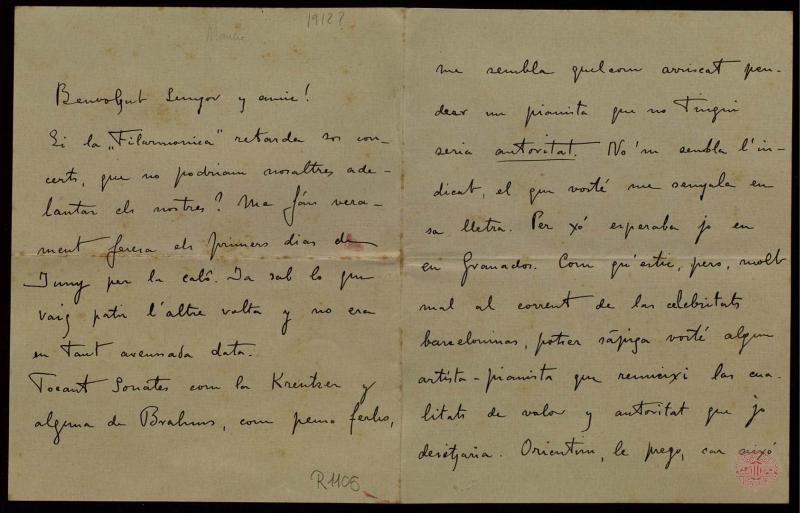 1912?
Benvolgut Senyor y amic!
Si la „Filarmonica" retarda sos con-
certs, que no podriam nosaltres ade-
lantar els nostres? Me fán vera-
ment feresa els primers dias de
Juny per la caló. Ja sab lo que
vaig patir l'altre volta y no era
en tant avensada data.
Tocant Sonates com la Kreutzer y
alguna de Brahms, com penso ferho,
R1105
me sembla quelcom arriscat pen-
dear un pianista que no tingui
seria autoritat. No'm sembla l'in-
dicat, el que vosté me senyala en
sa lletra. Per xó esperaba jo en
en Granados. Com qu'estic, pero, molt
mal al corrent de las celebritats
barceloninas, potser sápiga vosté algun
artista-pianista que reuneixi las cua-
litats de valor y autoritat que jo
desitjaria. Orientim, le prego, car aixó